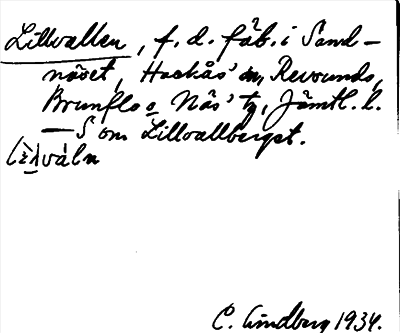 Lillvallen, f. d. fäb. i Sand-
näset, Hackås' sn, Revsunds,
Brunflo o Näs' tg, Jämtl. l.
— S om Lillvallberget.
váln
C. Lindberg 1934.